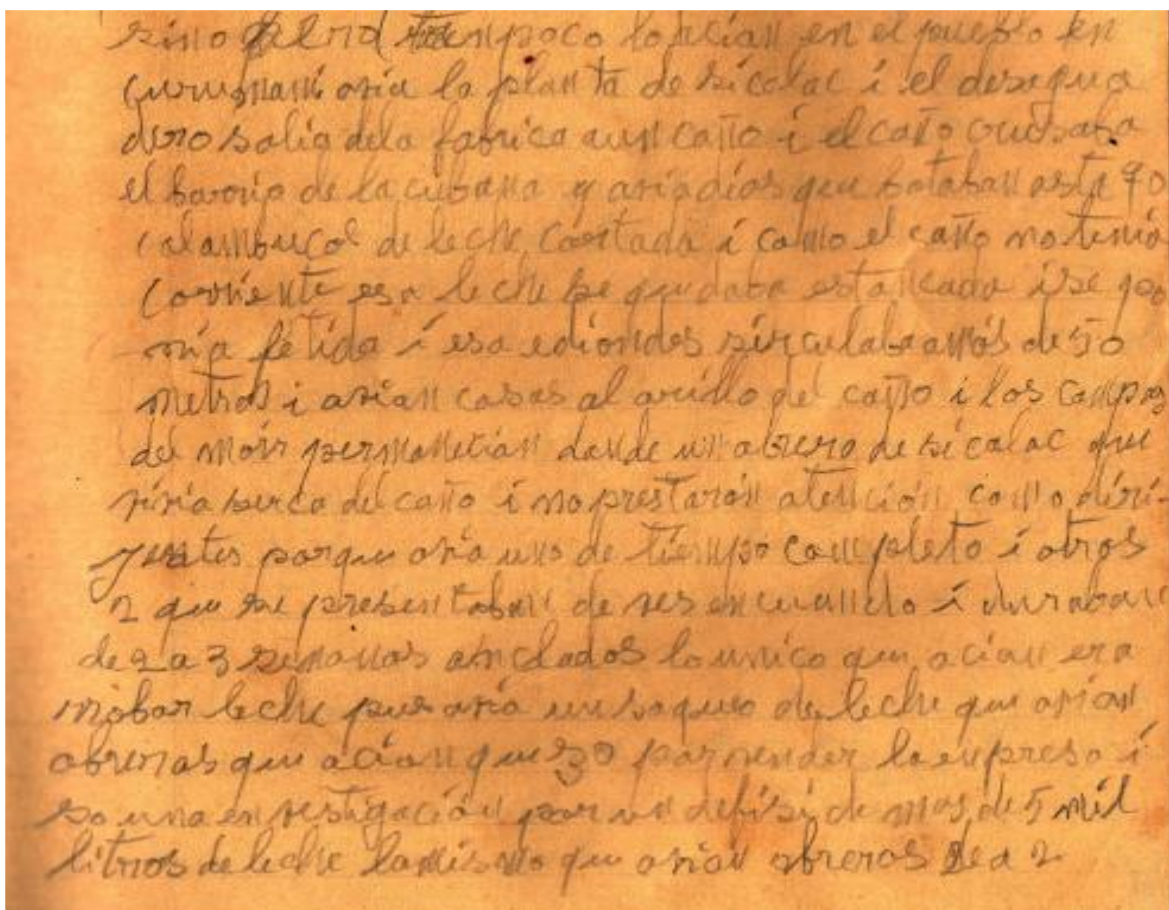 sino pero tampoco lo acian en el pueblo en
curumani avia la planta de sicolac i el desagua
dero salia dela fabrica aun caño i el caño crusaba
el barrio de la cubana y aviadias que botaban asta 40
calambucos de leche cortada i como el caño no tenia
corriente esa leche se quedaba estancada i se po
nia fetida i esa ediondes sirculaba amás de 50
metros i avian casas al orillo del caño i los compas
del moir permanecian donde un obrero de sicolac que
vivia serca del caño i no prestaron atención como diri-
jentes porque avia uno de tiempo completo i otros
2 que se presentaban de ves en cuando i duraban
de 2 a 3 semanas anclados lo unico que acian era
robar leche pues avia un saqueo de leche que avian
obreros que acian queso par vender la empresa i
so una envestigación por un defisi de mas de 5 mil
litros de leche lo mismo que avian obreros de a 2